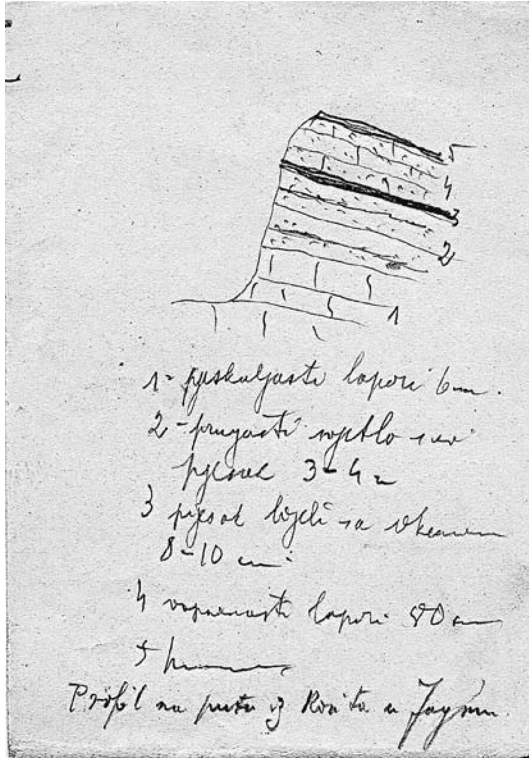 5
4
3
2
1
1 - pjeskuljasti lapori 6 m.
2 - prugasti svjetlo sivi
pjesak 3-4 m
3 pjesak bijeli sa
8-10 cm
4 vapnenasti lapori 80 cm
5 humus
Profil na putu iz u